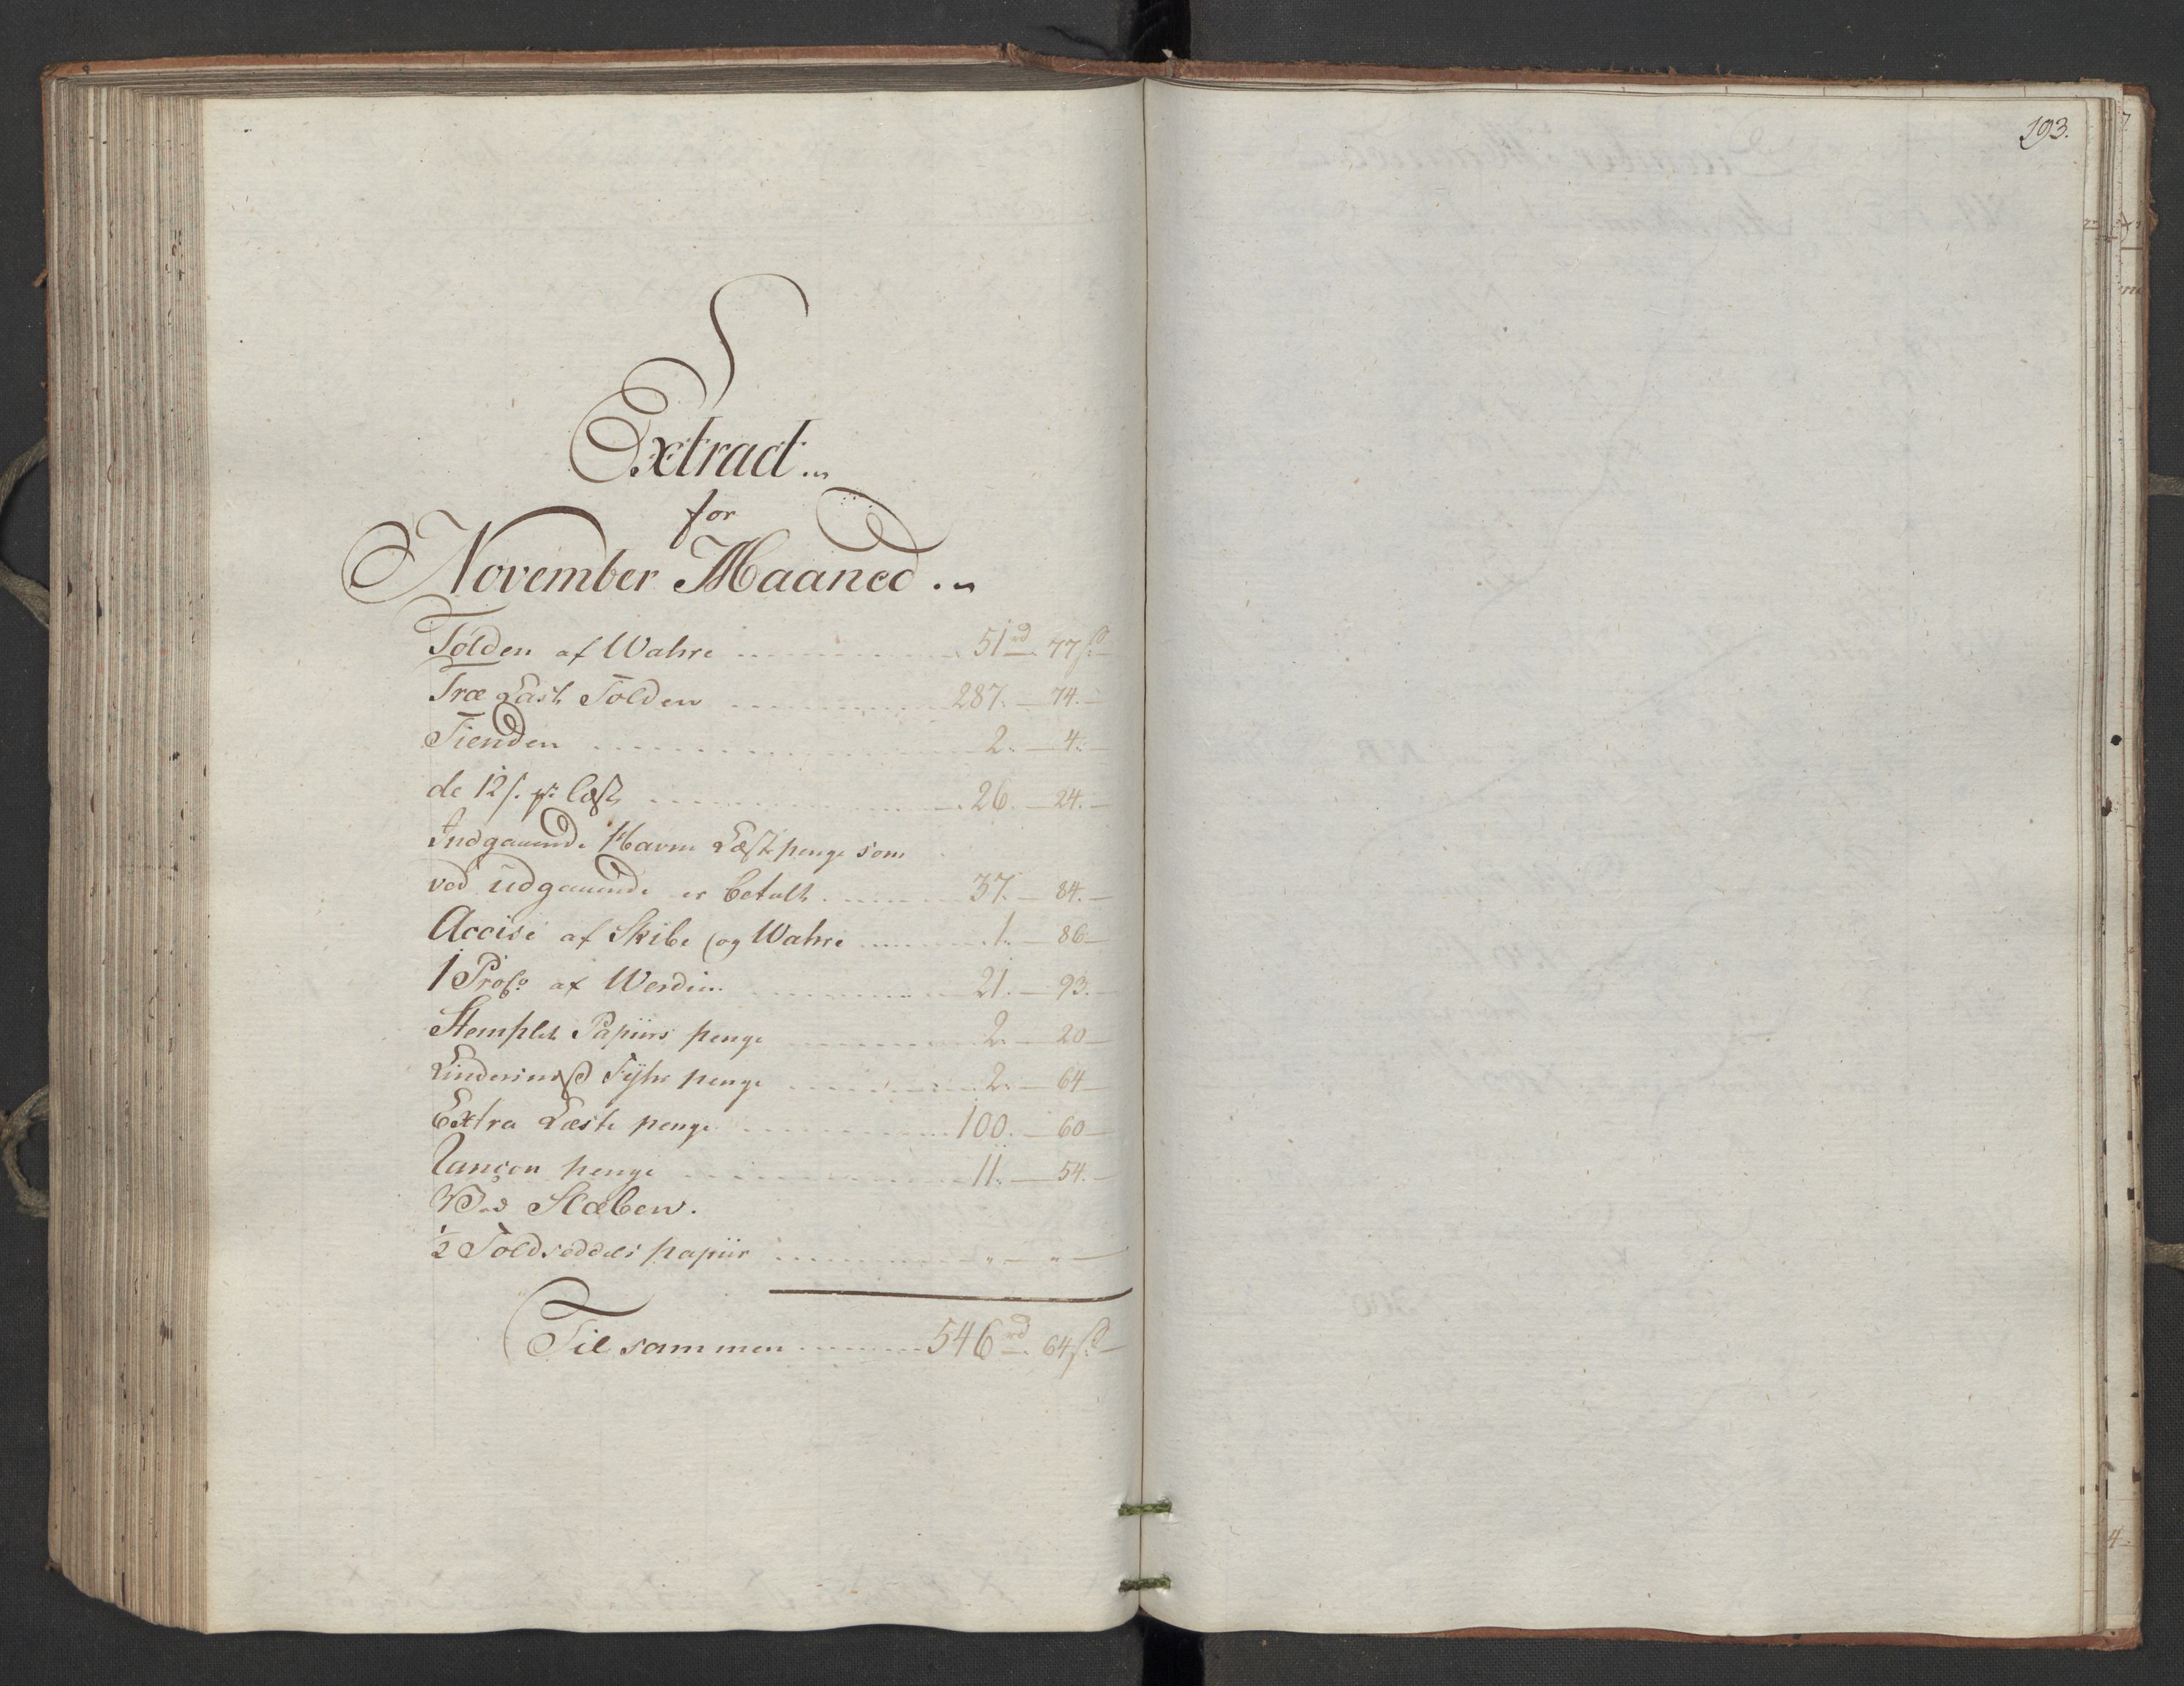 193.
Extract
for
November Maaned
Tolden af Wahre 51 rd 77 s
Træ Last Tolden 287. 74.
Tienden 2. 4.
de 12 s. pr Læst 26. 24.
Indgaaende Havne Læste penge som
ved udgaaende er betalt 37. 84.
Accise af Skibe og Wahre 1. 86
1 Proct af Werdien 21. 93.
Stemplet Papiirs penge 2. 20
Lindesnæs Fyhr penge 2. 64
Extra Læste penge 100. 60
Rançon penge 11. 54.
Ved Slæben.
1/2 Toldseddels papiir " "
Tilsammen 546 rd 64 s